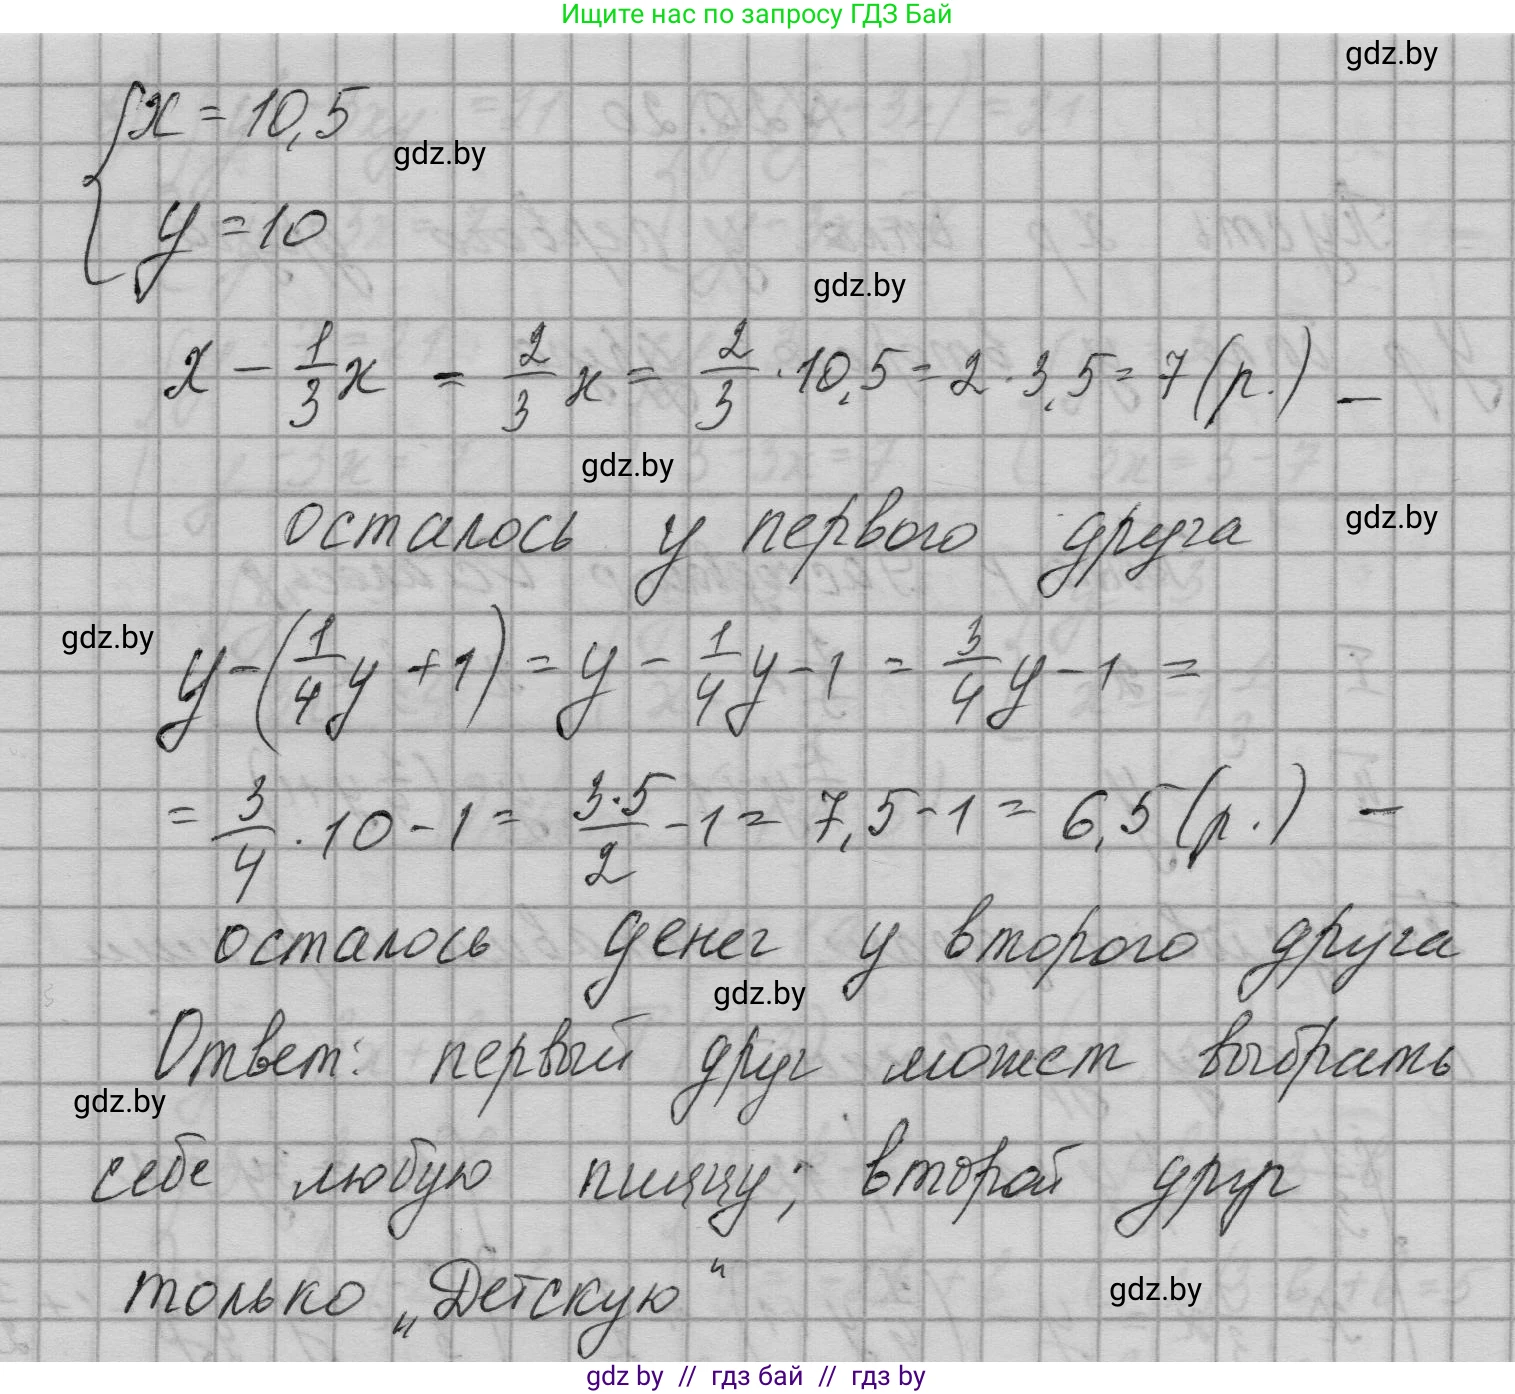 Ищите нас по запросу ГДЗ Бай
gdz.by
{ x = 10,5
gdz.by
y = 10
gdz.by
x - 1/3 x = 2/3 x = 2/3 · 10,5 = 2 · 3,5 = 7 (р.) –
gdz.by
осталось у первого друга
gdz.by
gdz.by
y - (1/4 y + 1) = y - 1/4 y - 1 = 3/4 y - 1 =
= 3/4 · 10 - 1 = 3·5/2 - 1 = 7,5 - 1 = 6,5 (р.) –
осталось денег у второго друга
gdz.by
Ответ: первый друг может выбрать
gdz.by
себе любую пиццу; второй друг
только „Детскую“
gdz.by
gdz by // гдз бай // гдз by